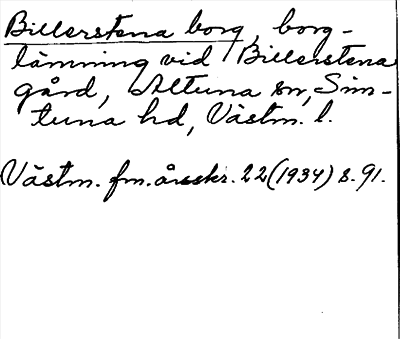 Billerstena borg, borg-
lämning vid Billerstena
gård, Altuna sn, Sim-
tuna hd, Västm. l.
Västm. fm. årsskr. 22 (1934) s. 91.